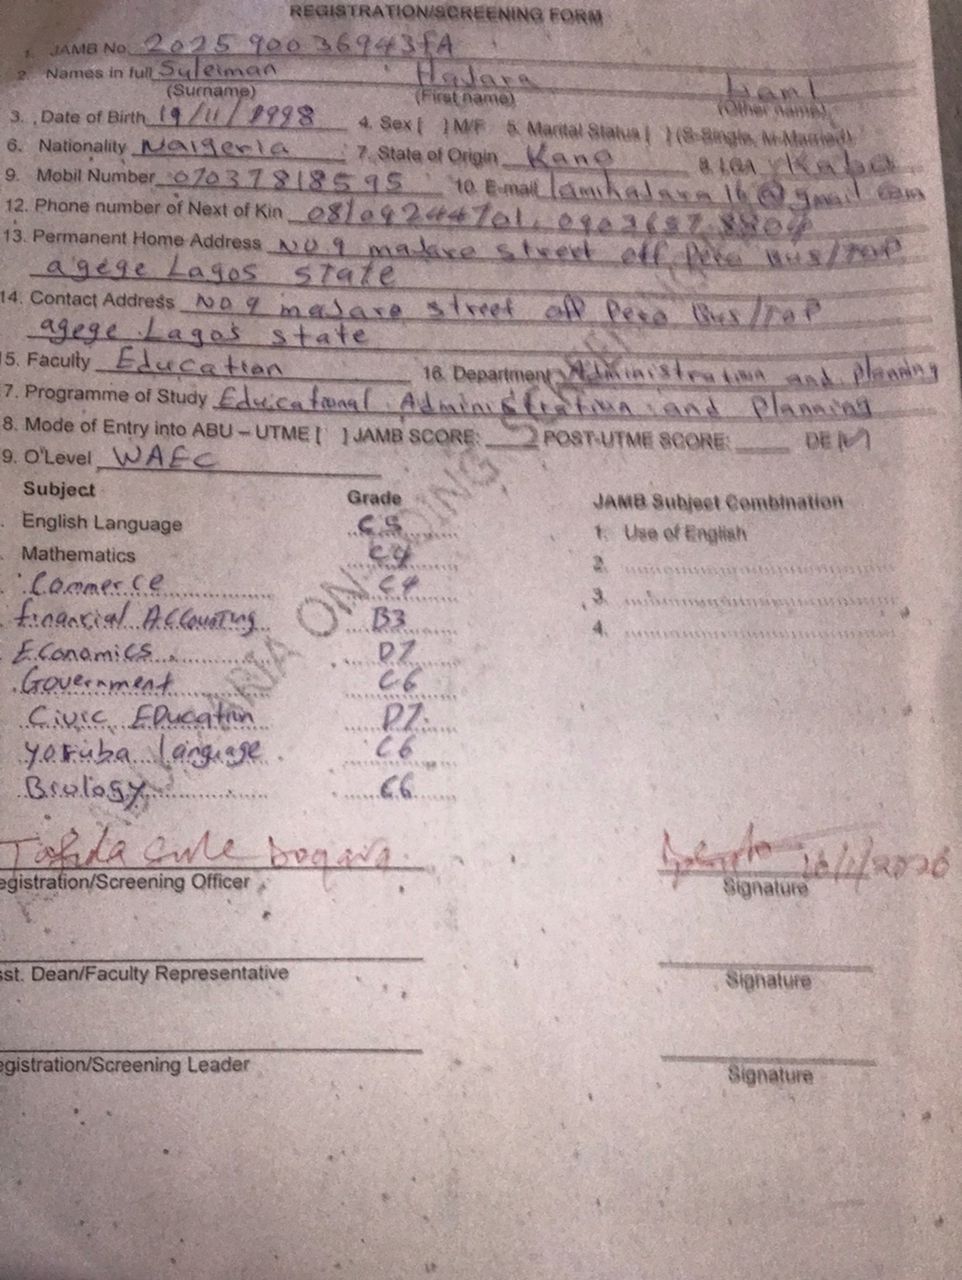 REGISTRATION/SCREENING FORM
1. JAMB No. 202590036943FA
2. Names in full Suleiman Hajara Lami
(Surname) (First name) (Other name)
3. Date of Birth 19/11/1998 4. Sex [ ] M/F 5. Marital Status [ ] (S-Single, M-Married)
6. Nationality Naigeria 7. State of Origin Kano 8. LGA Kabo
9. Mobil Number 07037818595 10. E-mail lamihajara16@gmail.com
12. Phone number of Next of Kin
13. Permanent Home Address NO 9 majaro street off Pero Bus/TOP
agege Lagos state
14. Contact Address NO 9 majaro street off Pero Bus/TOP
agege Lagos state
15. Faculty Education 16. Department Administration and planning
7. Programme of Study Educational Administration and Planning
8. Mode of Entry into ABU – UTME [ ] JAMB SCORE: POST-UTME SCORE: DE [✓]
9. O'Level WAEC
Subject Grade JAMB Subject Combination
English Language C5 1. Use of English
Mathematics C4 2.
Commerce C4 3.
financial Accounting B3 4.
Economics D7
Government C6
Civic Education D7
Yoruba language C6
Biology C6
Tafida Sule Dogara 16/1/2026
egistration/Screening Officer Signature
sst. Dean/Faculty Representative Signature
egistration/Screening Leader Signature